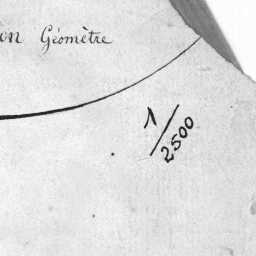 Géomètre
1/2500